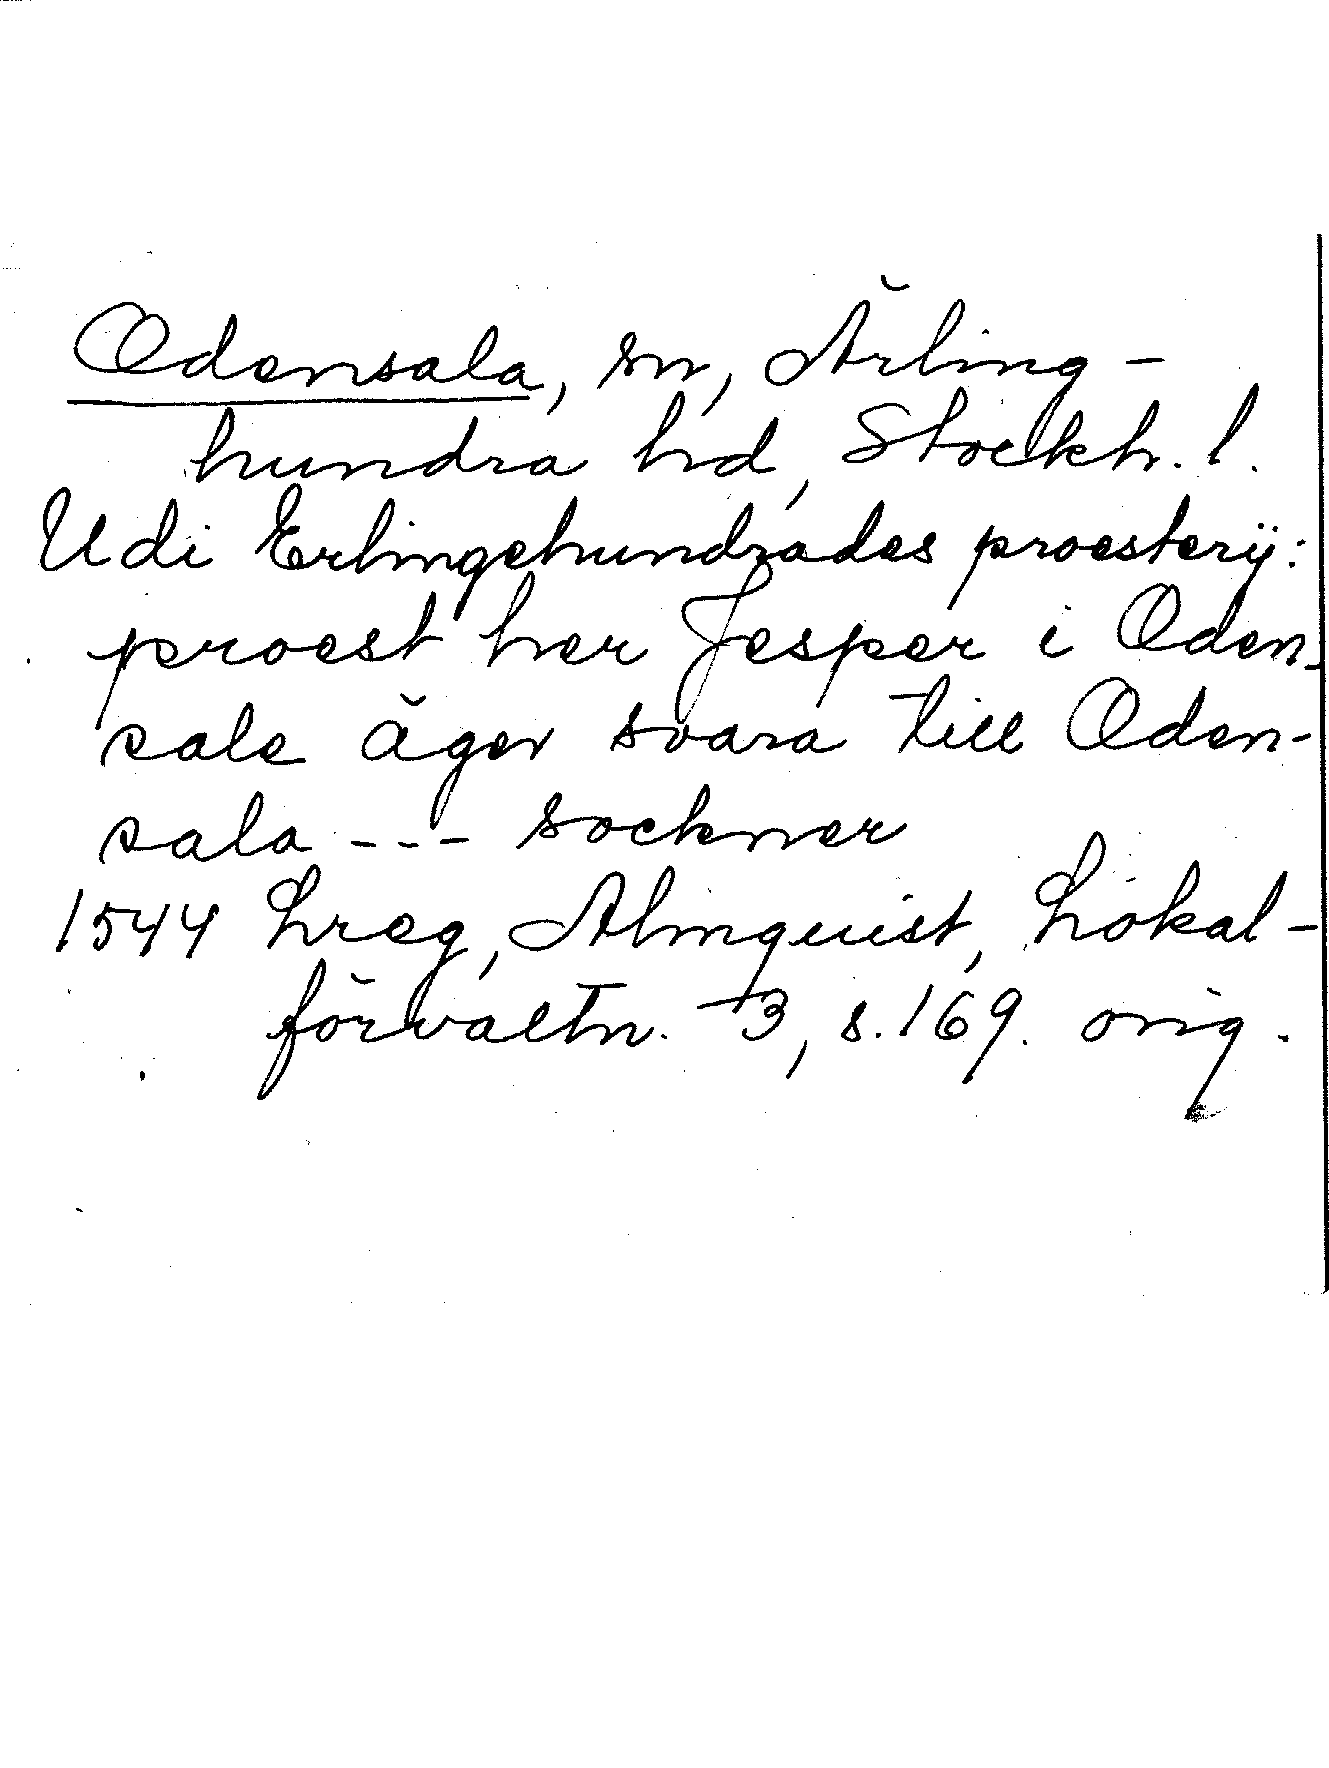 Odensala, sn, Ärling-
hundra hd, Stockh. l.
Udi Erlingehundrades proesterij:
proest her Jesper i Oden-
sale äger svara till Oden-
sala --- sockner
1544 Lreg, Almquist, Lokal-
förvaltn. 3, s. 169. orig.